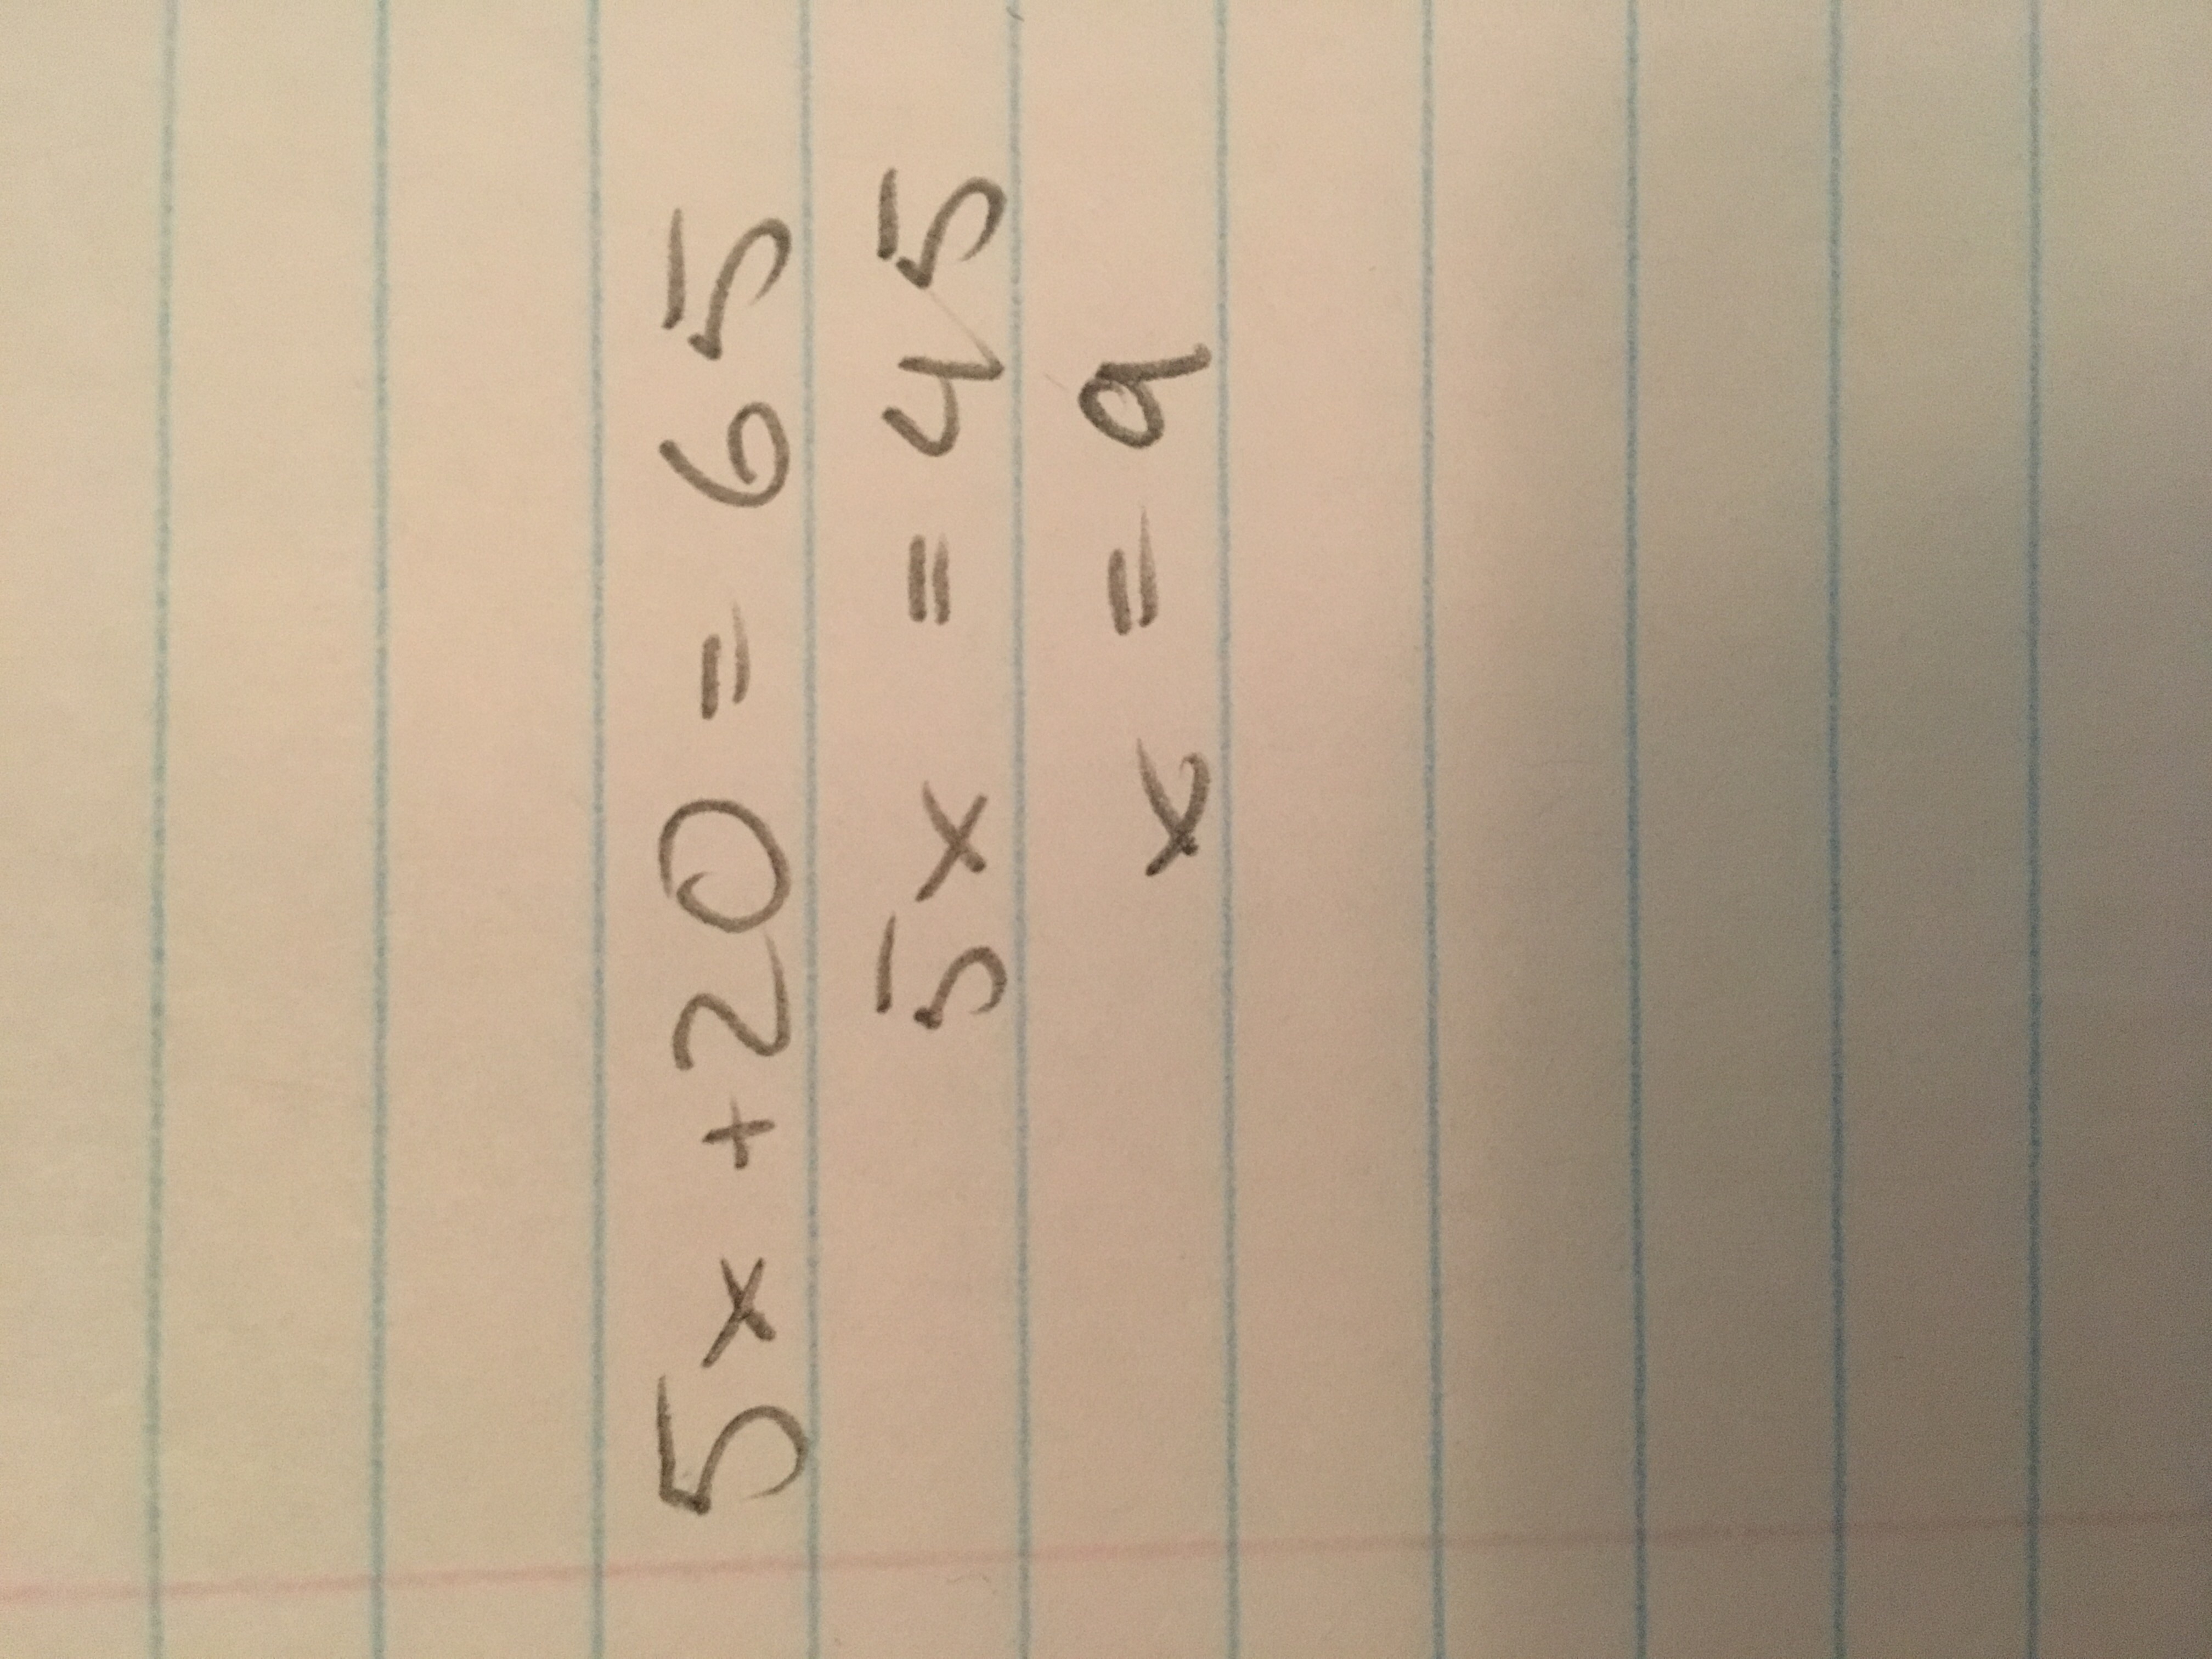 5x + 20 = 65
5x = 45
x = 9